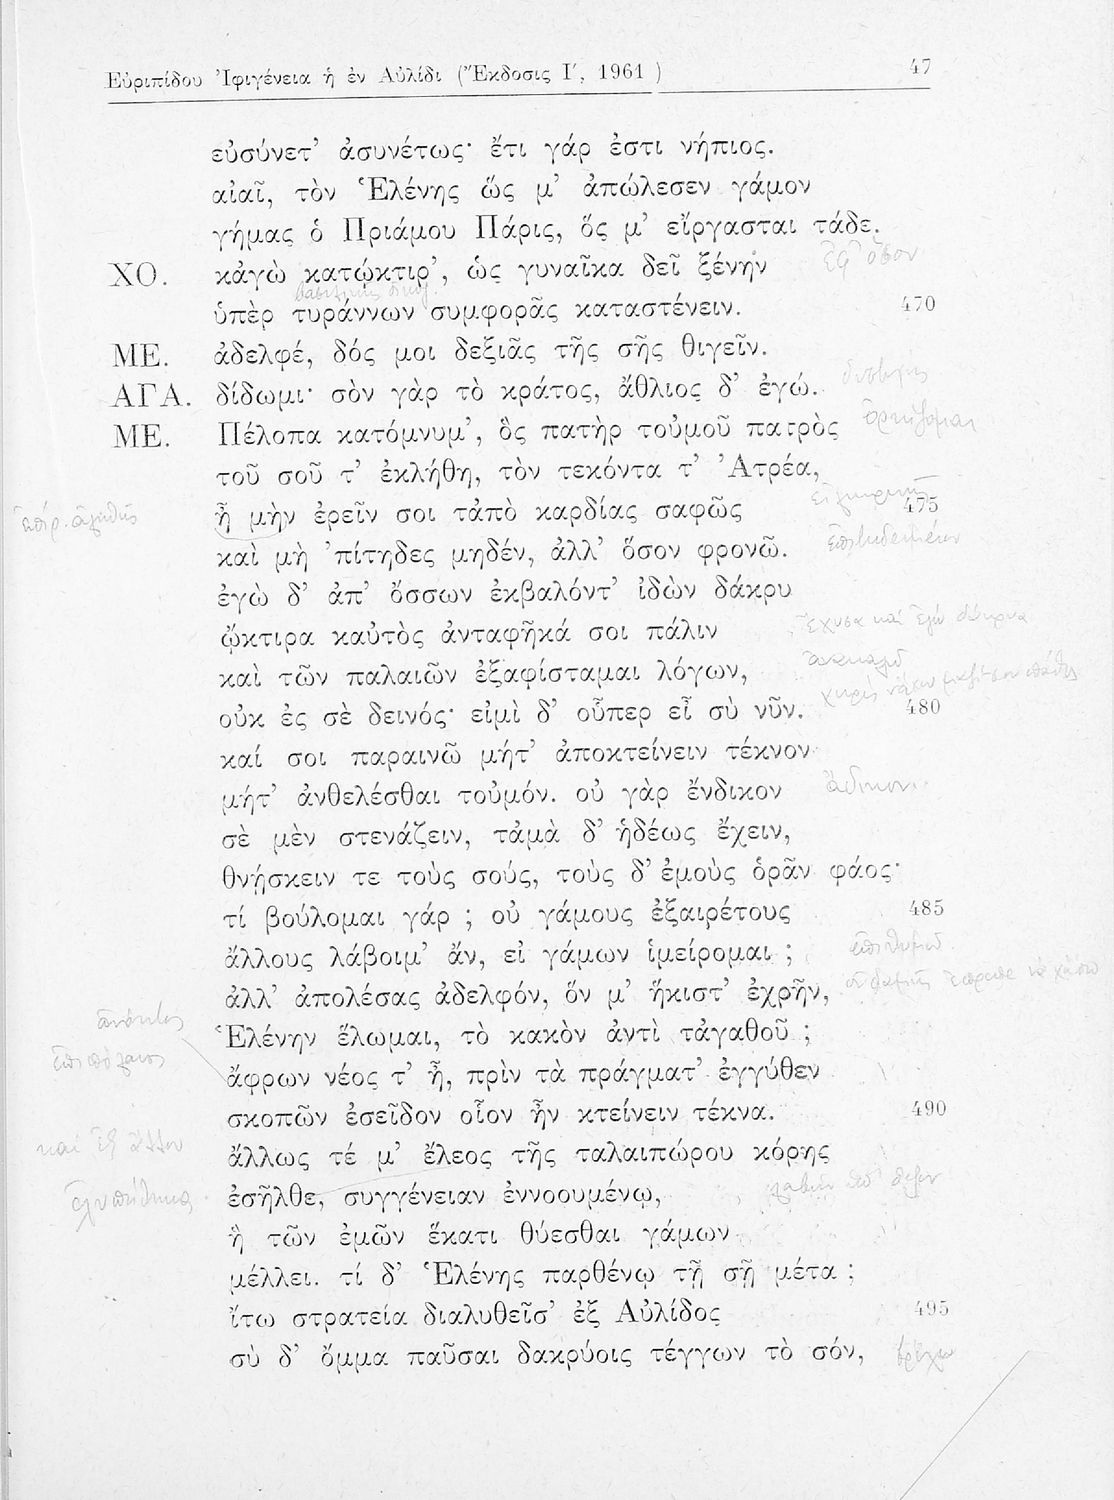 Εὐριπίδου Ἰφιγένεια ἡ ἐν Αὐλίδι (Ἔκδοσις Ι΄, 1961 )
47
εὐσύνετ' ἀσυνέτως· ἔτι γάρ ἐστι νήπιος.
αἰαῖ, τὸν Ἑλένης ὥς μ' ἀπώλεσεν γάμον
γήμας ὁ Πριάμου Πάρις, ὅς μ' εἴργασται τάδε.
ΧΟ. κἀγὼ κατῴκτιρ', ὡς γυναῖκα δεῖ ξένην
ἐφ' ὅσον
ὑπὲρ τυράννων συμφορᾶς καταστένειν. 470
ΜΕ. ἀδελφέ, δός μοι δεξιᾶς τῆς σῆς θιγεῖν.
ΑΓΑ. δίδωμι· σὸν γὰρ τὸ κράτος, ἄθλιος δ' ἐγώ.
δυστυχής
ΜΕ. Πέλοπα κατόμνυμ', ὃς πατὴρ τοὐμοῦ πατρὸς
ὁρκίζομαι
τοῦ σοῦ τ' ἐκλήθη, τὸν τεκόντα τ' Ἀτρέα,
ἦ μὴν ἐρεῖν σοι τἀπὸ καρδίας σαφῶς 475
καὶ μὴ 'πίτηδες μηδέν, ἀλλ' ὅσον φρονῶ.
ἐγὼ δ' ἀπ' ὄσσων ἐκβαλόντ' ἰδὼν δάκρυ
ᾤκτιρα καὐτὸς ἀνταφῆκά σοι πάλιν
ἔχυσα καὶ ἐγὼ δάκρυα
καὶ τῶν παλαιῶν ἐξαφίσταμαι λόγων,
ἀνακαλῶ
οὐκ ἐς σὲ δεινός· εἰμὶ δ' οὗπερ εἶ σὺ νῦν. 480
καί σοι παραινῶ μήτ' ἀποκτείνειν τέκνον
μήτ' ἀνθελέσθαι τοὐμόν. οὐ γὰρ ἔνδικον
ἄδικον
σὲ μὲν στενάζειν, τἀμὰ δ' ἡδέως ἔχειν,
θνῄσκειν τε τοὺς σούς, τοὺς δ' ἐμοὺς ὁρᾶν φάος·
τί βούλομαι γάρ ; οὐ γάμους ἐξαιρέτους 485
ἄλλους λάβοιμ' ἄν, εἰ γάμων ἱμείρομαι ;
ἐπιθυμῶ
ἀλλ' ἀπολέσας ἀδελφόν, ὅν μ' ἥκιστ' ἐχρῆν,
οὐδαμῶς ἔπρεπε νὰ χάσω
Ἑλένην ἕλωμαι, τὸ κακὸν ἀντὶ τἀγαθοῦ ;
ἀνόητος
ἐπιπόλαιος
ἄφρων νέος τ' ἦ, πρὶν τὰ πράγματ' ἐγγύθεν
σκοπῶν ἐσεῖδον οἷον ἦν κτείνειν τέκνα. 490
καὶ ἐξ ἄλλου
ἄλλως τέ μ' ἔλεος τῆς ταλαιπώρου κόρης
ἐλυπήθηκα
ἐσῆλθε, συγγένειαν ἐννοουμένῳ,
ἣ τῶν ἐμῶν ἕκατι θύεσθαι γάμων
μέλλει. τί δ' Ἑλένης παρθένῳ τῇ σῇ μέτα ;
ἴτω στρατεία διαλυθεῖσ' ἐξ Αὐλίδος 495
σὺ δ' ὄμμα παῦσαι δακρύοις τέγγων τὸ σόν,
βρέχω